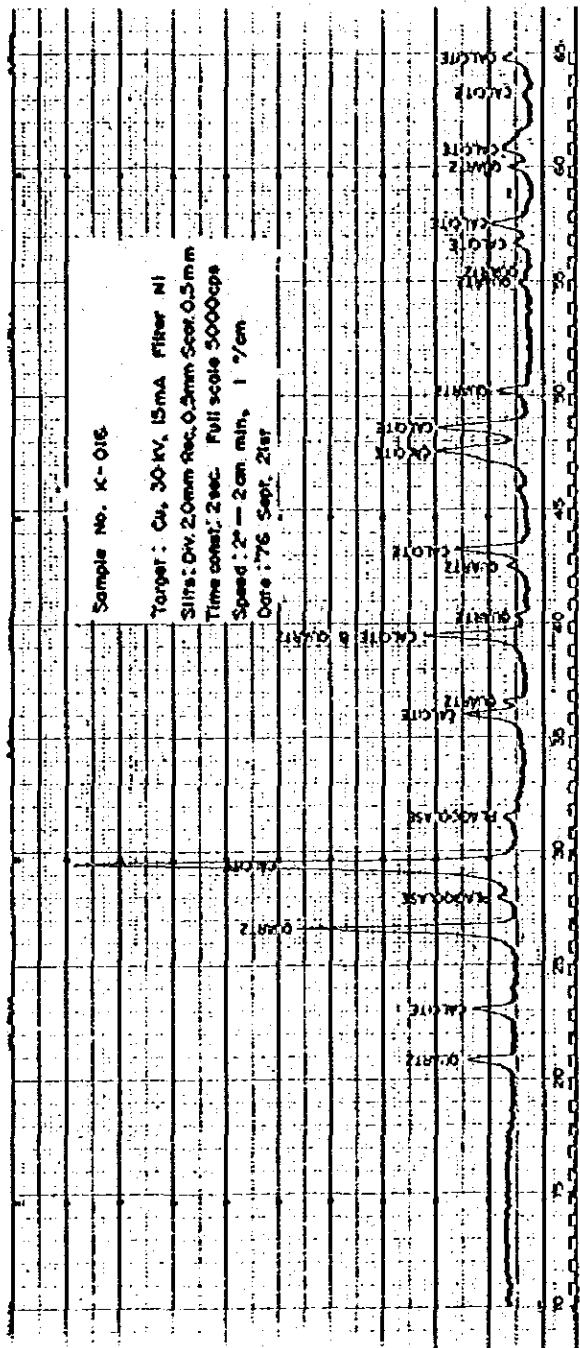 Sample No. K-016
Target: Cu, 30 kV, 15mA Filter Ni
Slits: Div. 2.0mm Rec. 0.5mm Scat. 0.5mm
Time const: 2sec. Full scale 5000cps
Speed: 2° — 2cm min, 1 °/cm
Date: '76 Sept. 21st
QUARTZ
CALCITE
QUARTZ
PLAGIOCLASE
CALCITE
PLAGIOCLASE
CALCITE
QUARTZ
CALCITE & QUARTZ
QUARTZ
QUARTZ
CALCITE
CALCITE
CALCITE
QUARTZ
QUARTZ
QUARTZ
CALCITE
CALCITE
QUARTZ
CALCITE
CALCITE
CALCITE
10 15 20 25 30 35 40 45 50 55 60 65